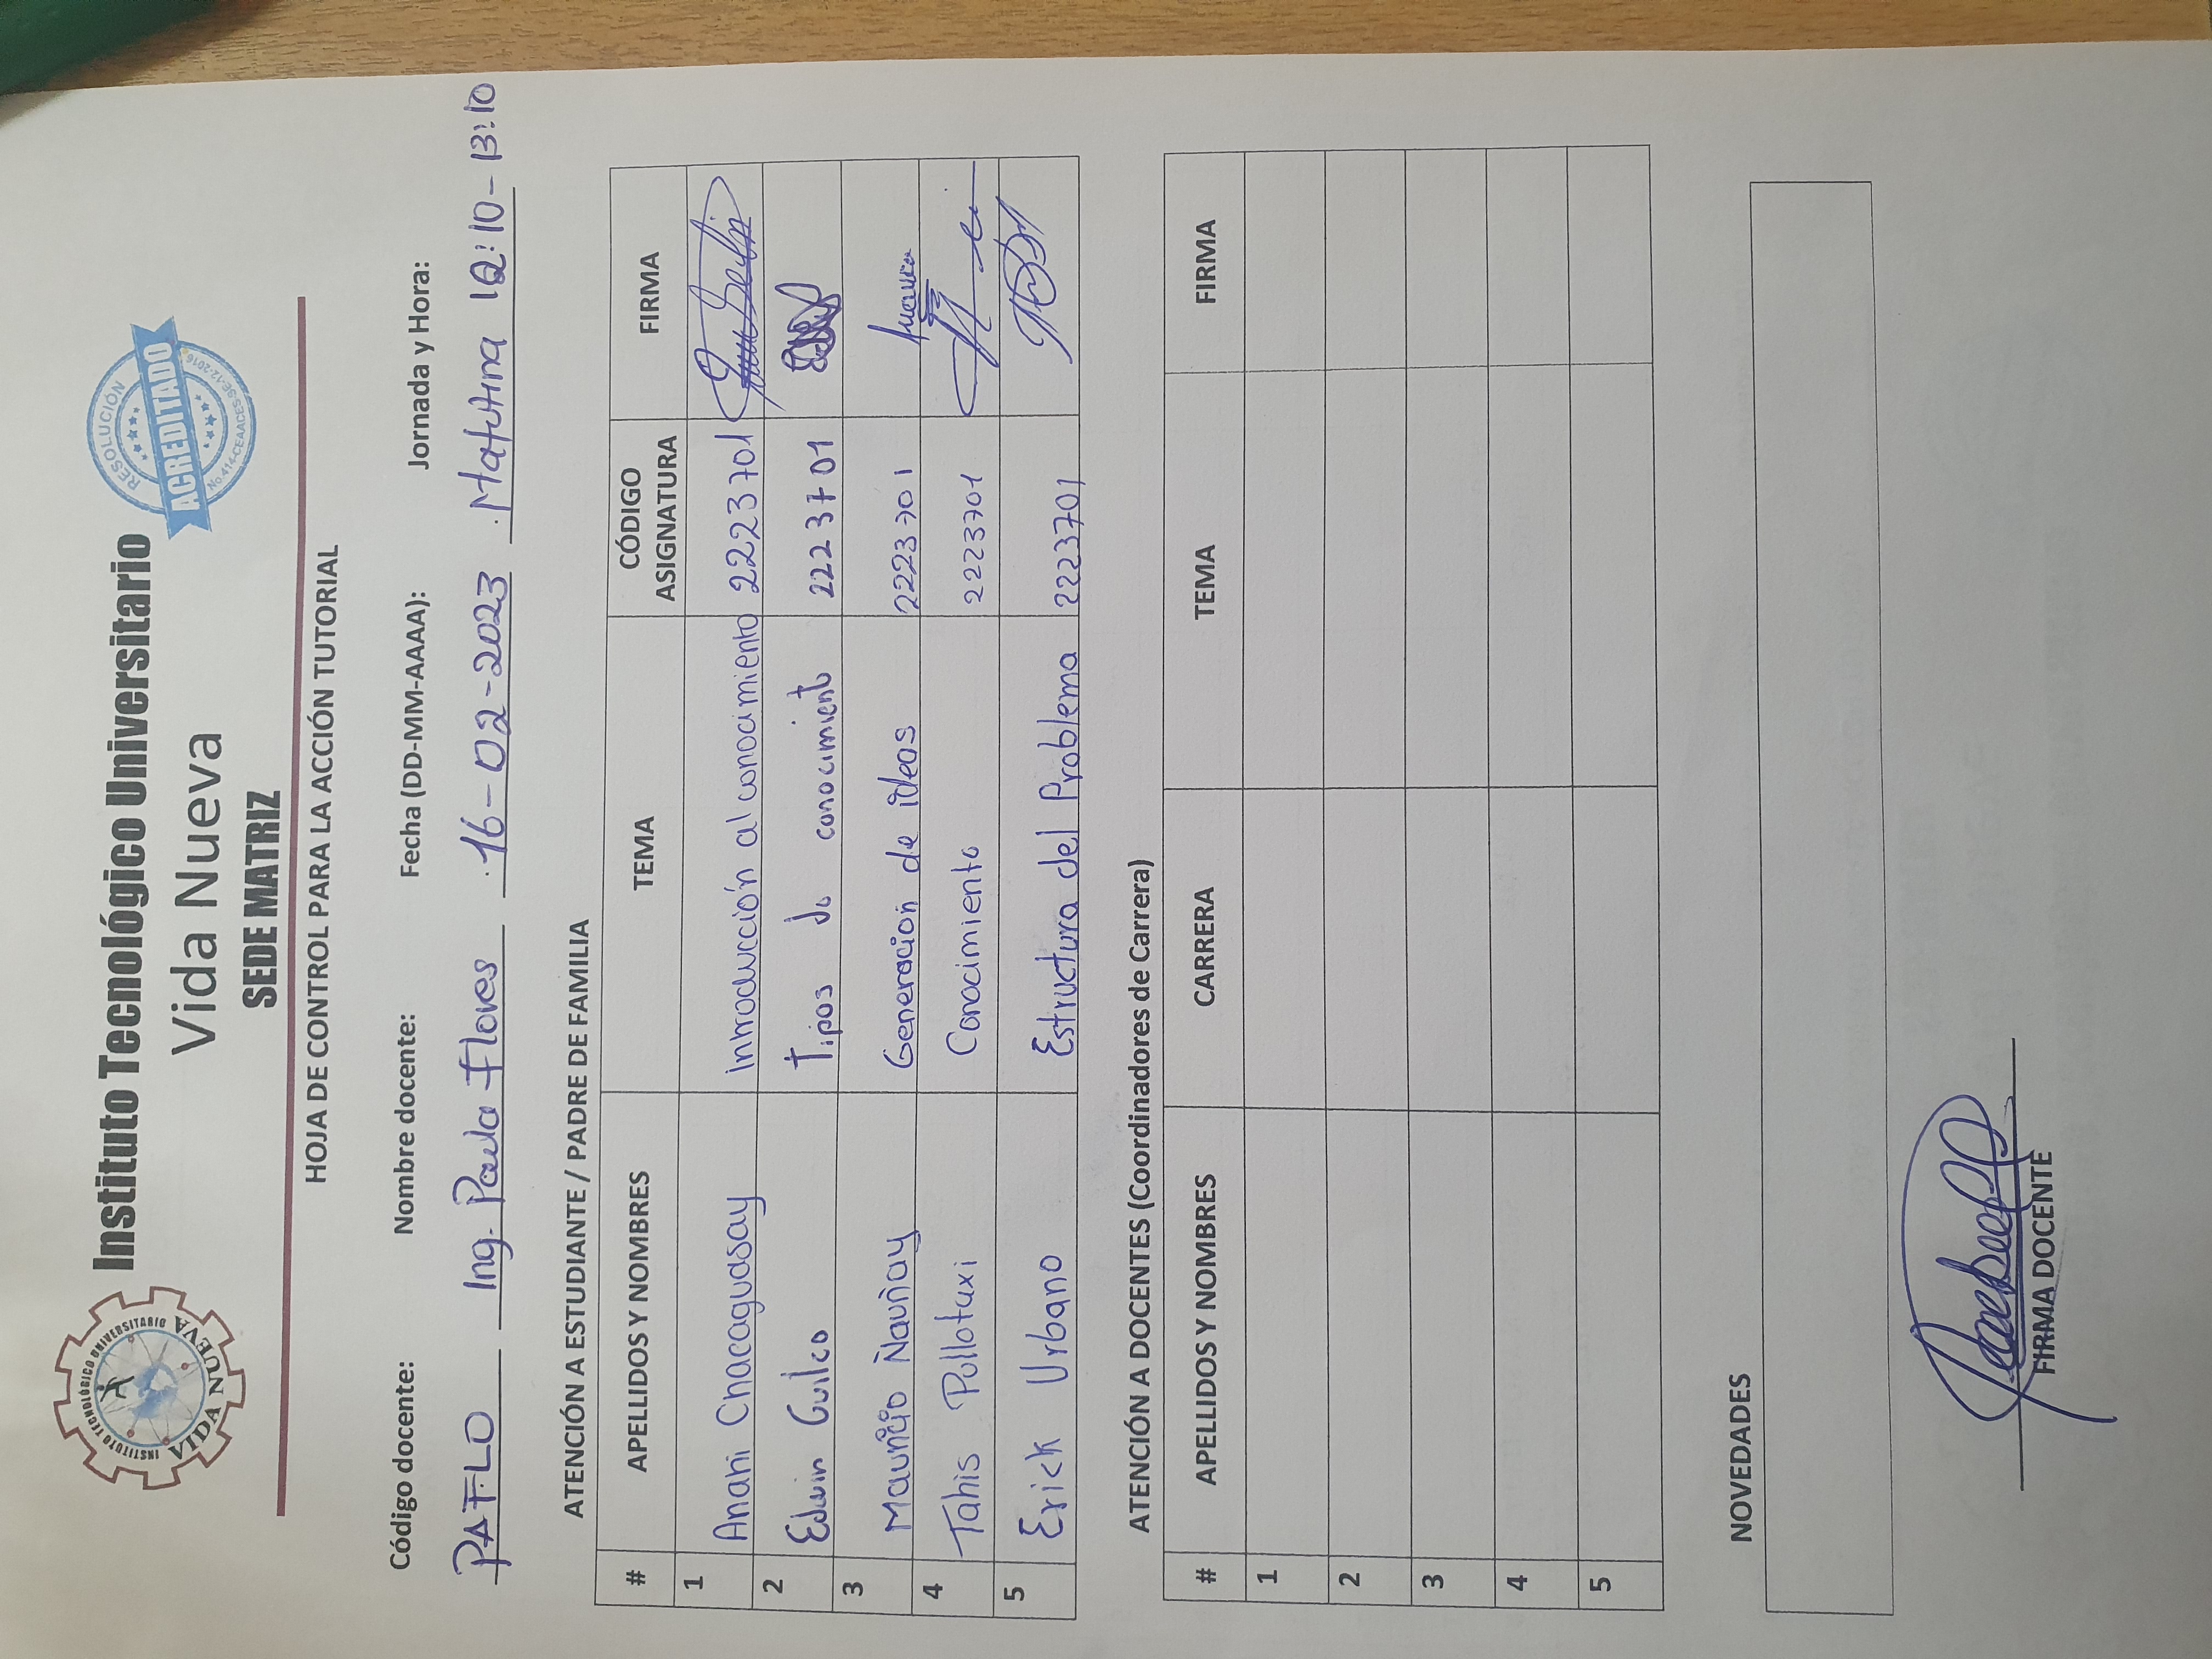 INSTITUTO TECNOLÓGICO UNIVERSITARIO
VIDA NUEVA
Instituto Tecnológico Universitario
Vida Nueva
SEDE MATRIZ
RESOLUCIÓN
ACREDITADO
No.414-CEAACES-SE-12-2016
HOJA DE CONTROL PARA LA ACCIÓN TUTORIAL
Código docente: Nombre docente: Fecha (DD-MM-AAAA): Jornada y Hora:
PAFLO Ing. Paula Flores 16-02-2023 Matutina 12:10-13:10
ATENCIÓN A ESTUDIANTE / PADRE DE FAMILIA
# APELLIDOS Y NOMBRES TEMA CÓDIGO ASIGNATURA FIRMA
1 Anahi Chacaguasay Inrroducción al conocimiento 2223701
2 Edwin Guilco Tipos de conocimiento 2223701
3 Mauricio Ñauñay Generacion de ideas 2223701
4 Tahis Pullotaxi Conocimiento 2223701
5 Erick Urbano Estructura del Problema 2223701
ATENCIÓN A DOCENTES (Coordinadores de Carrera)
# APELLIDOS Y NOMBRES CARRERA TEMA FIRMA
1
2
3
4
5
NOVEDADES
FIRMA DOCENTE